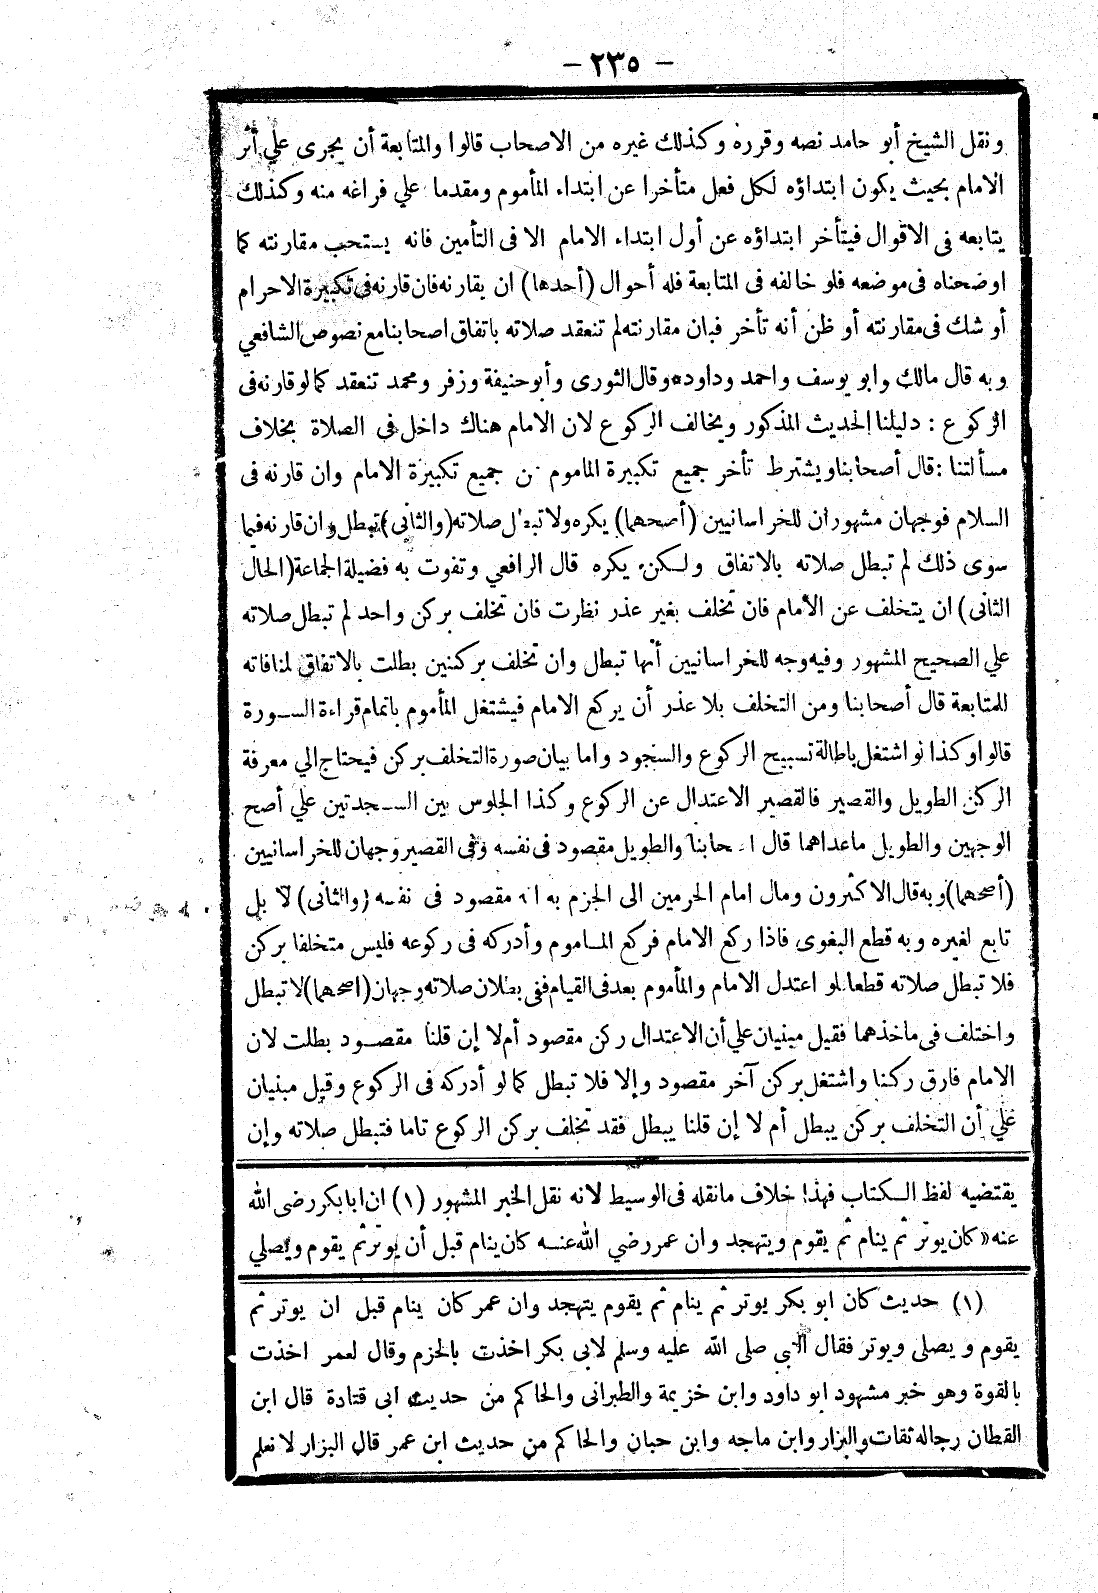 — ٢٣٥ —
ونقل الشيخ أبو حامد نصه وقرره وكذلك غيره من الاصحاب قالوا والمتابعة أن يجرى علي أثر
الامام بحيث يكون ابتداؤه لكل فعل متأخرا عن ابتداء المأموم ومقدما علي فراغه منه وكذلك
يتابعه فى الاقوال فيتأخر ابتداؤه عن أول ابتداء الامام الا فى التأمين فانه يستحب مقارنته كما
اوضحناه فى موضعه فلو خالفه فى المتابعة فله أحوال (أحدها) ان يقارنه فان قارنه فى تكبيرة الاحرام
أو شك فى مقارنته أو ظن أنه تأخر فبان مقارنته لم تنعقد صلاته باتفاق اصحابنا مع نصوص الشافعي
وبه قال مالك وابو يوسف واحمد وداود* وقال الثورى وأبو حنيفة وزفر ومحمد تنعقد كما لو قارنه فى
الركوع : دليلنا الحديث المذكور ويخالف الركوع لان الامام هناك داخل فى الصلاة بخلاف
مسألتنا : قال أصحابنا ويشترط تأخر جميع تكبيرة الماموم عن جميع تكبيرة الامام وان قارنه فى
السلام فوجهان مشهوران للخراسانيين (أصحهما) يكره ولا تبطل صلاته (والثانى) تبطل وان قارنه فيما
سوى ذلك لم تبطل صلاته بالاتفاق ولكن يكره قال الرافعي وتفوت به فضيلة الجماعة (الحال
الثانى) ان يتخلف عن الأمام فان تخلف بغير عذر نظرت فان تخلف بركن واحد لم تبطل صلاته
علي الصحيح المشهور وفيه وجه للخراسانيين أنها تبطل وان تخلف بركنين بطلت بالاتفاق لمنافاته
للمتابعة قال أصحابنا ومن التخلف بلا عذر أن يركع الامام فيشتغل المأموم باتمام قراءة السورة
قالوا وكذا لو اشتغل باطالة تسبيح الركوع والسجود واما بيان صورة التخلف بركن فيحتاج الي معرفة
الركن الطويل والقصير فالقصير الاعتدال عن الركوع وكذا الجلوس بين السجدتين علي أصح
الوجهين والطويل ماعداهما قال اصحابنا والطويل مقصود فى نفسه وفى القصير وجهان للخراسانيين
(أصحهما) وبه قال الاكثرون ومال امام الحرمين الى الجزم به انه مقصود فى نفسه (والثانى) لا بل
تابع لغيره وبه قطع البغوى فاذا ركع الامام فركع الماموم وأدركه فى ركوعه فليس متخلفا بركن
فلا تبطل صلاته قطعا فلو اعتدل الامام والمأموم بعد فى القيام ففى بطلان صلاته وجهان (اصحهما) لا تبطل
واختلف فى ماخذهما فقيل مبنيان علي أن الاعتدال ركن مقصود أم لا إن قلنا مقصود بطلت لان
الامام فارق ركنا واشتغل بركن آخر مقصود وإلا فلا تبطل كما لو أدركه فى الركوع وقيل مبنيان
علي أن التخلف بركن يبطل أم لا إن قلنا يبطل فقد تخلف بركن الركوع تاما فتبطل صلاته وإن
يقتضيه لفظ الكتاب فهذا خلاف مانقله فى الوسيط لانه نقل الخبر المشهور (١) ان ابا بكر رضى الله
عنه «كان يوتر ثم ينام ثم يقوم ويتهجد وان عمر رضي الله عنه كان ينام قبل أن يوتر ثم يقوم ويصلي
(١) حديث كان ابو بكر يوتر ثم ينام ثم يقوم يتهجد وان عمر كان ينام قبل ان يوتر ثم
يقوم ويصلى ويوتر فقال النبي صلى الله عليه وسلم لابى بكر اخذت بالحزم وقال لعمر اخذت
بالقوة وهو خبر مشهود ابو داود وابن خزيمة والطبرانى والحاكم من حديث ابى قتادة قال ابن
القطان رجاله ثقات والبزار وابن ماجه وابن حبان والحاكم من حديث ابن عمر قال البزار لا نعلم